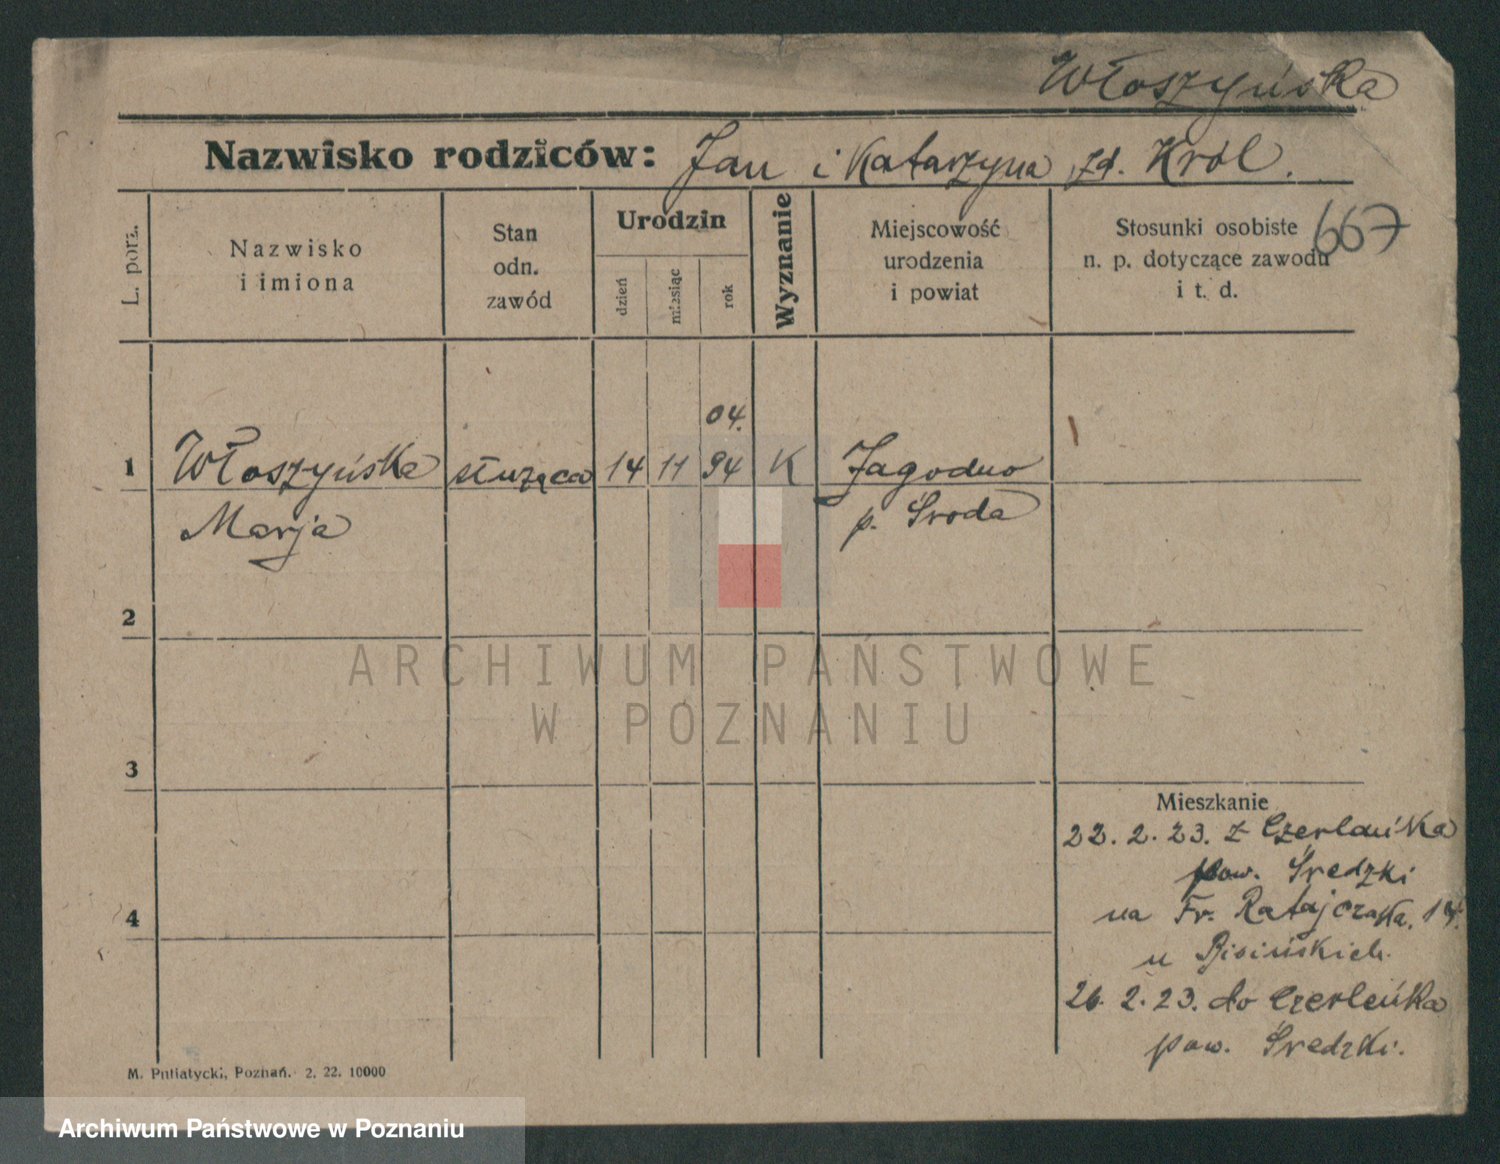 Włoszyńska
Nazwisko rodziców: Jan i Katarzyna zd. Król.
667
L. porz.
Nazwisko
i imiona
Stan
odn.
zawód
Urodzin
dzień
miesiąc
rok
Wyznanie
Miejscowość
urodzenia
i powiat
Stosunki osobiste
n. p. dotyczące zawodu
i t. d.
04.
1 Włoszyńska służąca 14 11 94 K Jagodno
Marja p. Środa
2
3
4
Mieszkanie
22. 2. 23. z Czerlańka
pow. Średzki
na Fr. Ratajczaka,
u
26. 2. 23. do Czerleńka
pow. Średzki.
M. Putiatycki, Poznań. 2. 22. 10000
ARCHIWUM PAŃSTWOWE
W POZNANIU
Archiwum Państwowe w Poznaniu